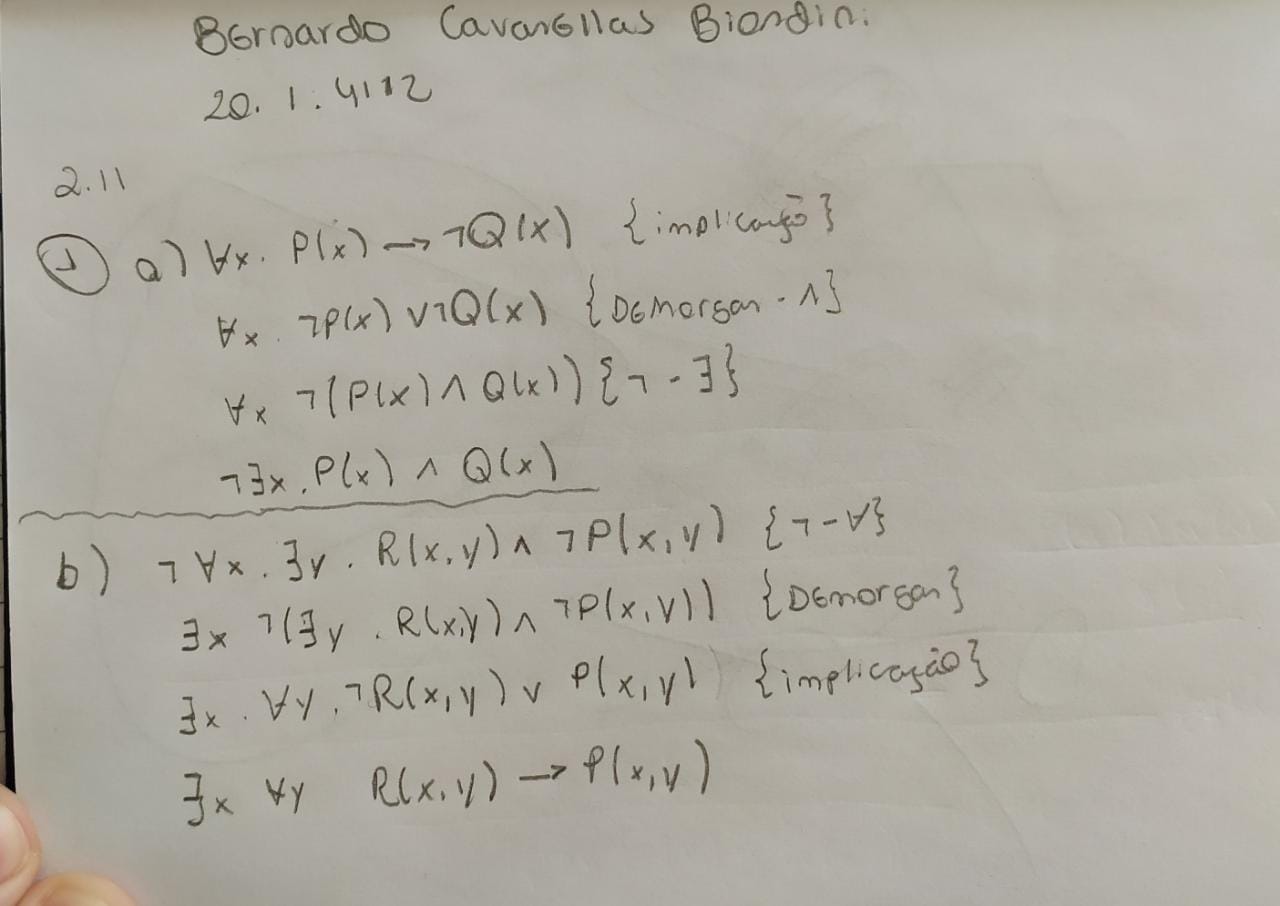 Bernardo Cavarellas Biondini
20.1.4112
2.11
① a) ∀x. P(x) → ¬Q(x) {implicação}
∀x. ¬P(x) ∨ ¬Q(x) {DeMorgan - ∧}
∀x ¬(P(x) ∧ Q(x)) {¬ - ∃}
¬∃x. P(x) ∧ Q(x)
b) ¬∀x. ∃y. R(x,y) ∧ ¬P(x,y) {¬-∀}
∃x ¬(∃y. R(x,y) ∧ ¬P(x,y)) {Demorgan}
∃x. ∀y. ¬R(x,y) ∨ P(x,y) {implicação}
∃x ∀y R(x,y) → P(x,y)